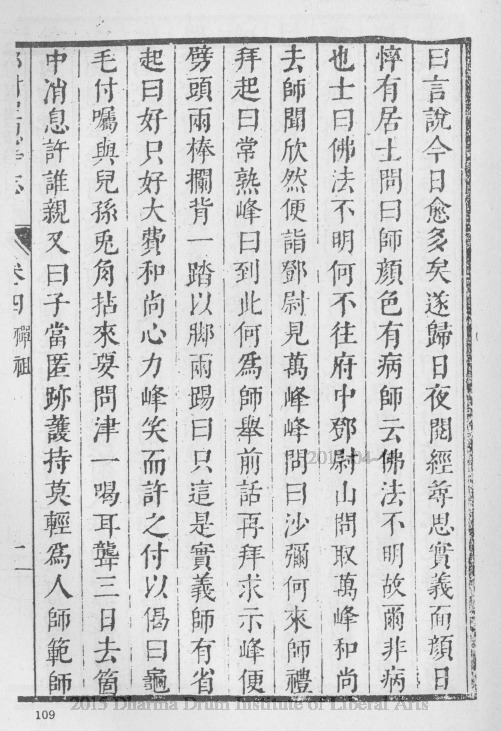 曰言說今日愈多矣遂歸日夜閱經尋思實義而顏日
悴有居士問曰師顏色有病師云佛法不明故爾非病
也士曰佛法不明何不往府中鄧尉山問取萬峰和尚
去師聞欣然便詣鄧尉見萬峰峰問曰沙彌何來師禮
拜起曰常熟峰曰到此何爲師舉前話再拜求示峰便
劈頭兩棒攔背一踏以脚兩踢曰只這是實義師有省
起曰好只好大費和尚心力峰笑而許之付以偈曰龜
毛付囑與兒孫兎角拈來要問津一喝耳聾三日去箇
中消息許誰親又曰子當匿跡護持莫輕爲人師範師
卷四 禪祖
109
2013 Dharma Drum Institute of Liberal Arts